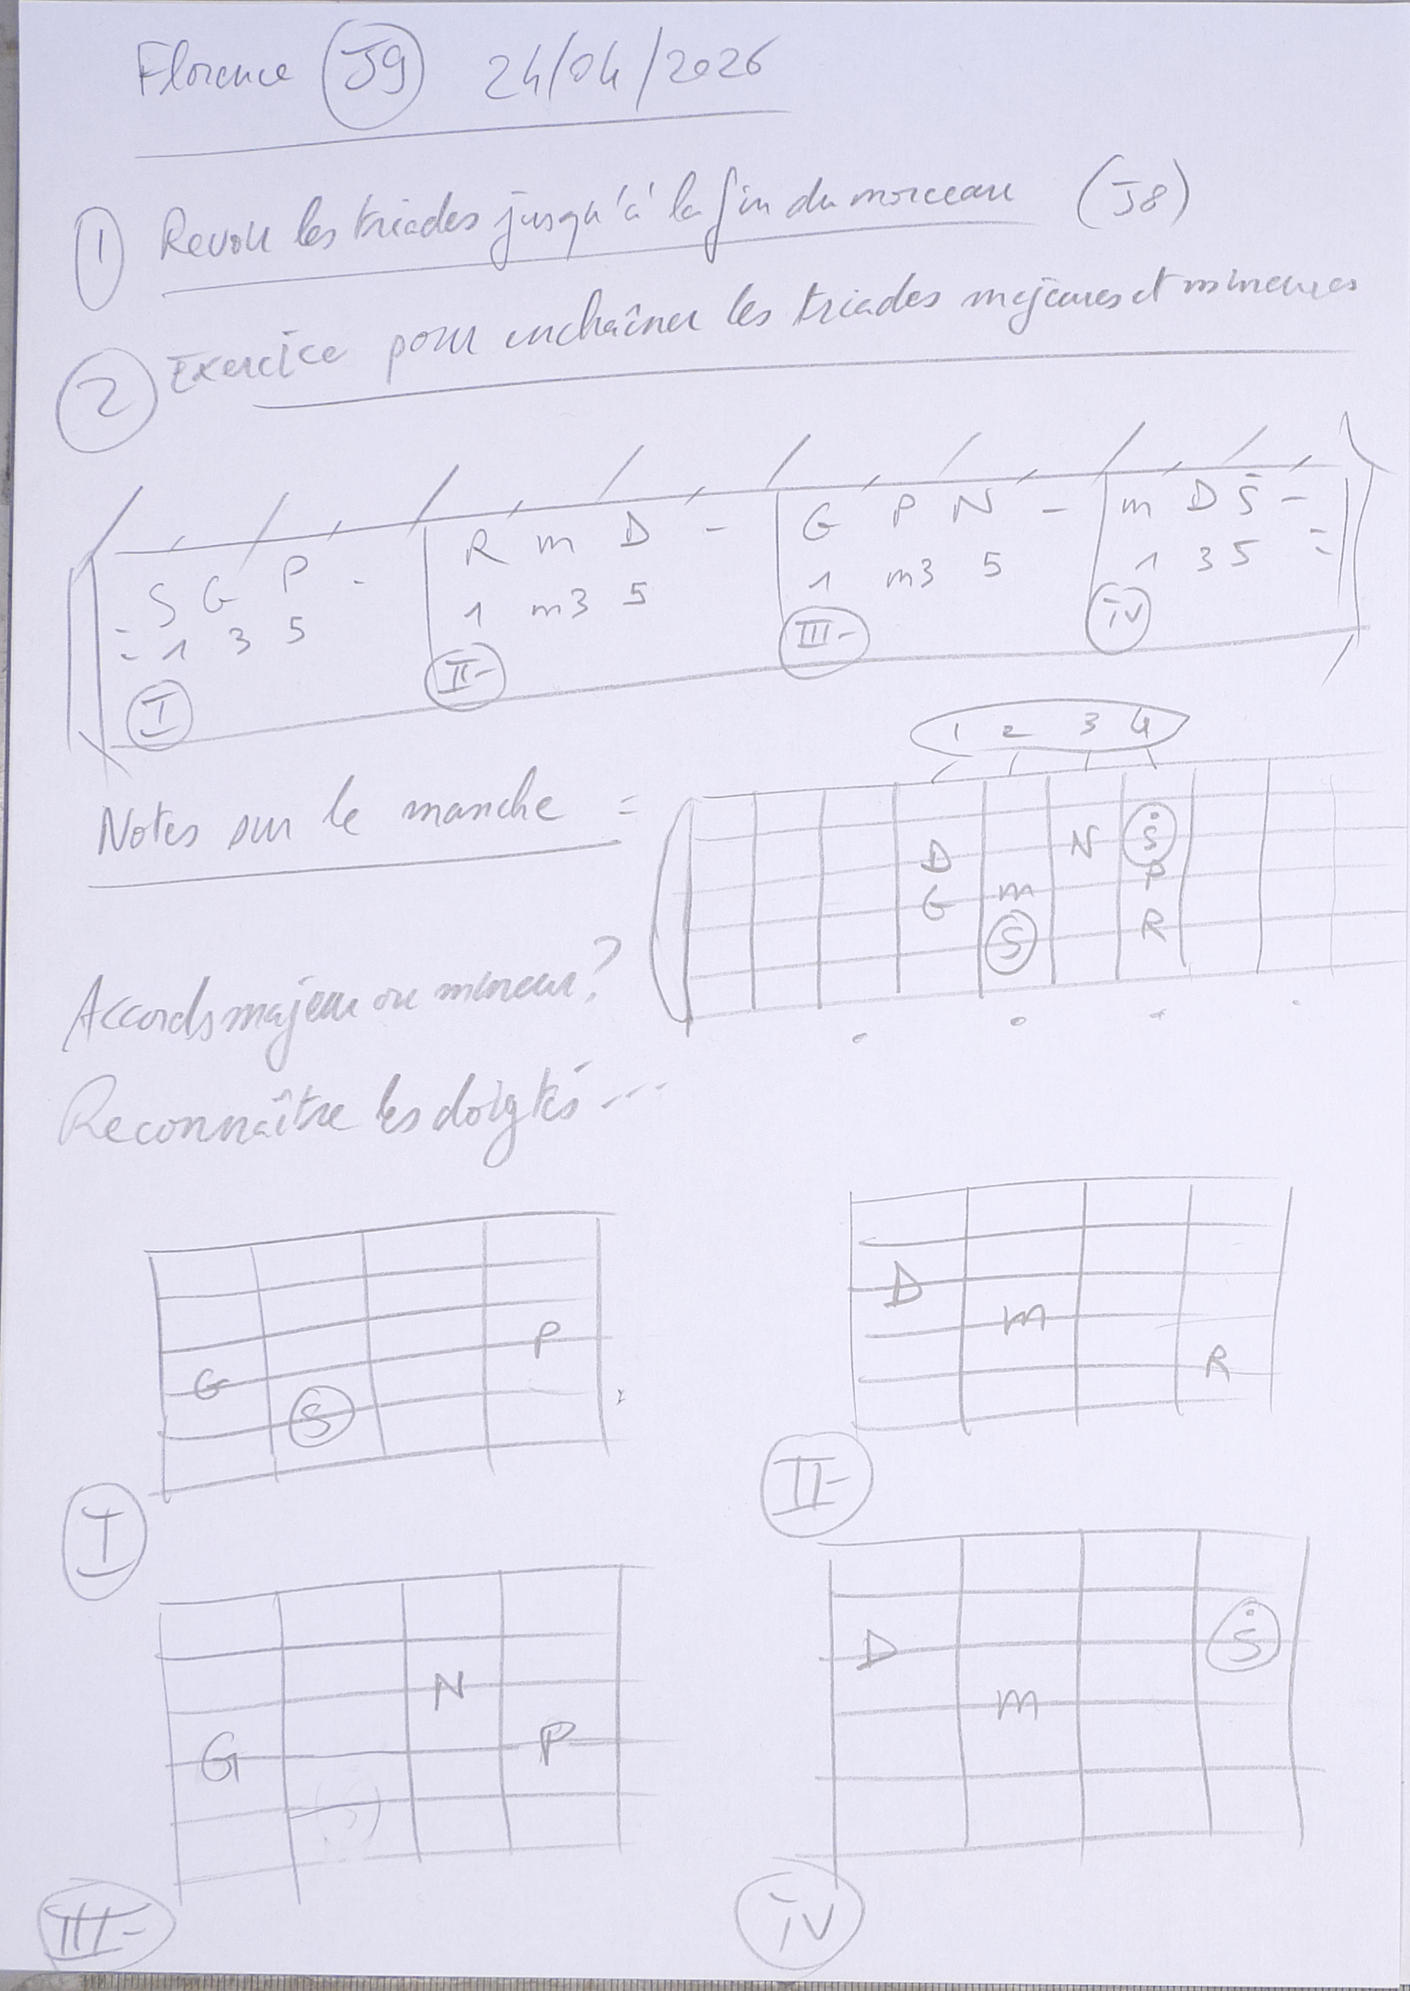 Florence J9 24/04/2026
1 Revoir les triades jusqu'à la fin du morceau (J8)
2 Exercice pour enchaîner les triades majeures et mineures
S G P - R m D - G P N - m D Ṡ -
= 1 3 5 1 m3 5 1 m3 5 1 3 5 =
I II- III- IV
1 2 3 4
Notes sur le manche =
D N Ṡ
G m P
S R
Accords majeur ou mineur?
Reconnaître les doigtés ...
G S P
I
D m R
II-
G N P
III-
D m Ṡ
IV